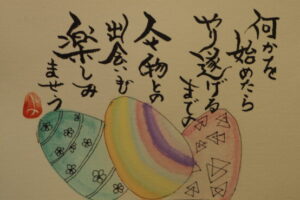 何かを
始めたら
やり遂げる
までの
人や物との
出会いも
楽しみ
ませう